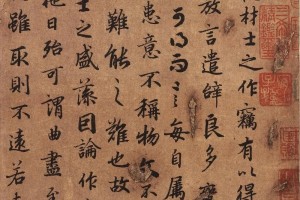 材士之作竊有以得
放言遣辭良多變
可得而言每自属
患意不稱物文不
難能之難也故
士之盛藻因論作
他日殆可謂曲盡
雖取則不遠若